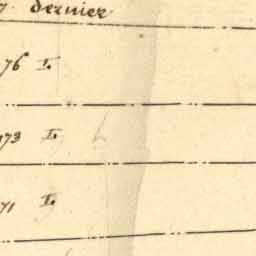 7 dernier
76 I.
173 I.
71 I.